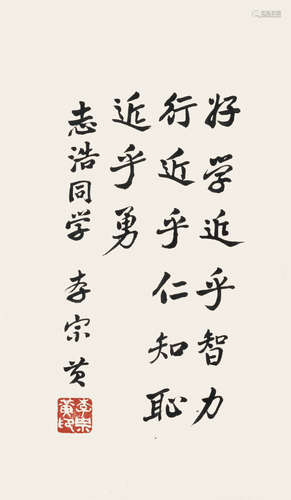 好学近乎智力
行近乎仁知耻
近乎勇
志浩同学 李宗黄